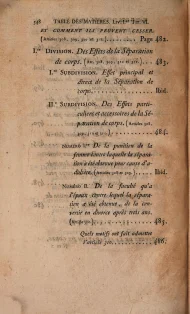 TABLE DES MATIERES. Liv. I.er Tit. VI.
ET COMMENT ILS PEUVENT CESSER.
Page 482.
I.re DIVISION. Des Effets de la Séparation
de corps. 483.
I.re SUBDIVISION. Effet principal et
direct de la Séparation de
corps. Ibid.
II.e SUBDIVISION. Des Effets parti-
culiers et accessoires de la Sé-
paration de corps.
484.
NUMÉRO I.er De la punition de la
femme contre laquelle la sépara-
tion a été obtenue pour cause d'a-
dultère. Ibid.
NUMÉRO II. De la faculté qu'a
l'époux contre lequel la sépara-
tion a été obtenue, de la con-
vertir en divorce après trois ans.
485.
Quels motifs ont fait admettre
l'article 486.